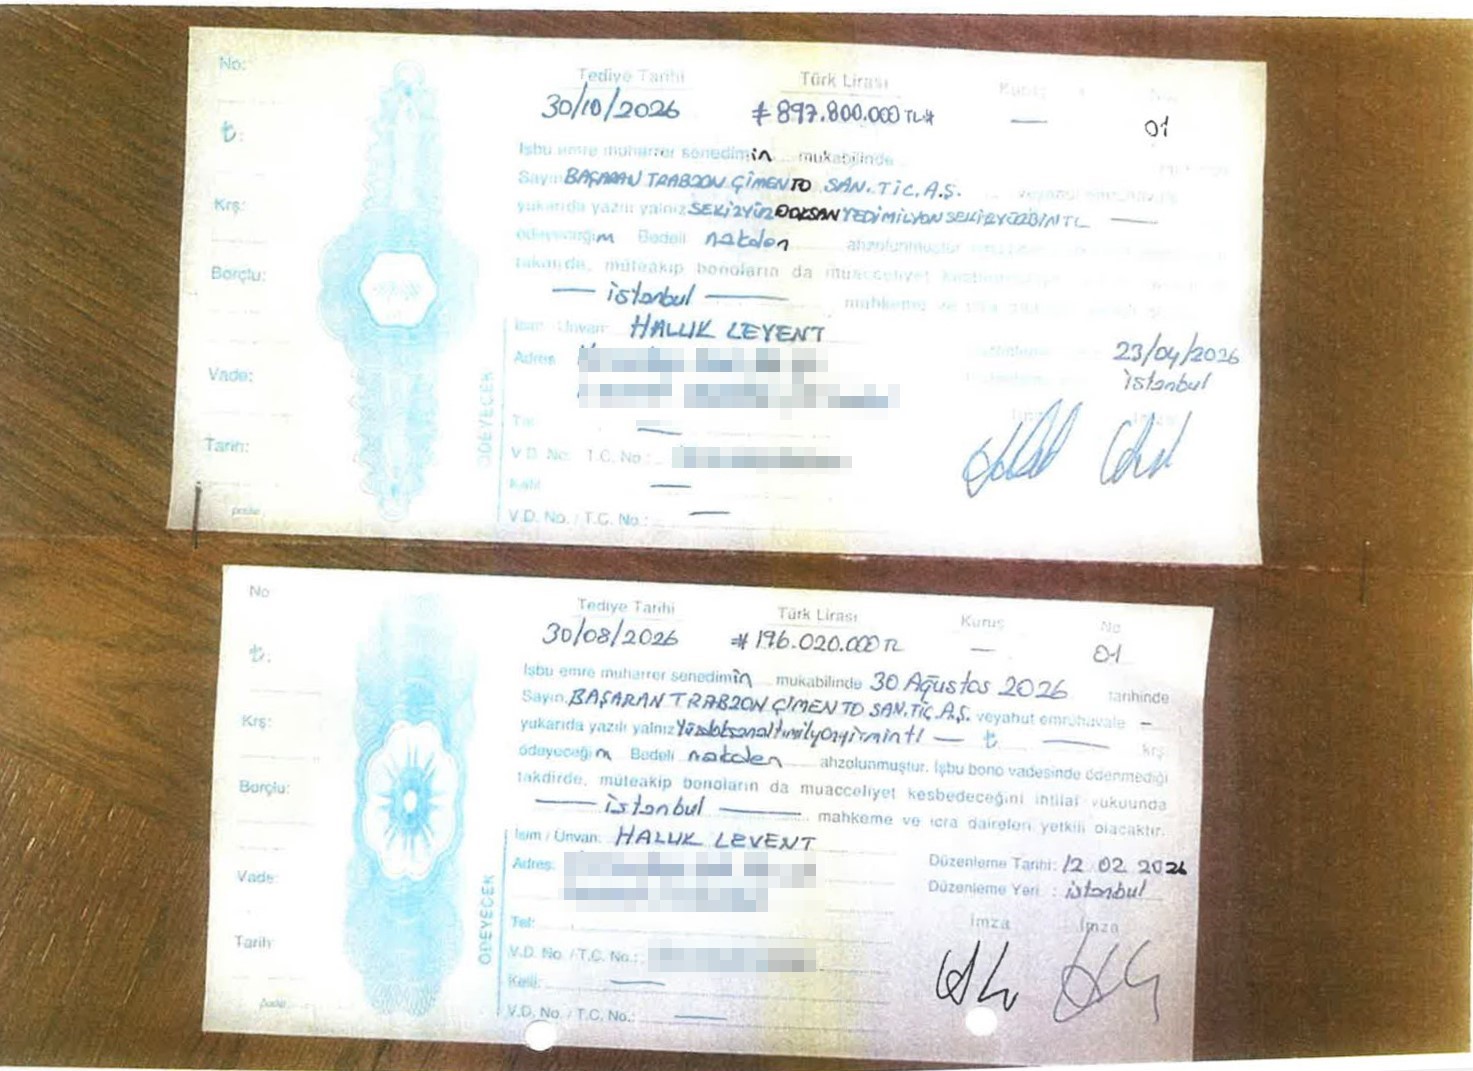 No:
Tediye Tarihi Türk Lirası Kuruş No
30/10/2026 #897.800.000 TL# — 01
₺:
İşbu emre muharrer senedimin mukabilinde
Sayın BAŞARAN TRABZON ÇİMENTO SAN.TİC.A.Ş. veyahut emrühavale
Krş:
yukarıda yazılı yalnız SEKİZYÜZDOKSANYEDİMİLYONSEKİZYÜZBİNTL —
ödeyeceğim Bedeli nakden ahzolunmuştur
Borçlu:
takdirde, müteakip bonoların da muacceliyet
— istanbul — mahkeme ve icra
İsim / Ünvan: HALUK LEVENT
Adres
23/04/2026
Vade:
istanbul
ÖDEYECEK
Tel:
İmza İmza
Tarih:
V.D. No: T.C. No:
Kefil: —
V.D. No. / T.C. No.: —
No
Tediye Tarihi Türk Lirası Kuruş No
30/08/2026 #196.020.000 TL — 01
₺:
İşbu emre muharrer senedimin mukabilinde 30 Ağustos 2026 tarihinde
Sayın BAŞARAN TRABZON ÇİMENTO SAN.TİC.A.Ş. veyahut emrühavale —
Krş:
yukarıda yazılı yalnız Yüzdoksanaltımilyonyirmintl — ₺ — krş.
ödeyeceğim Bedeli nakden ahzolunmuştur. İşbu bono vadesinde ödenmediği
Borçlu:
takdirde, müteakip bonoların da muacceliyet kesbedeceğini ihtilaf vukuunda
— istanbul — mahkeme ve icra daireleri yetkili olacaktır.
İsim / Ünvan: HALUK LEVENT
Adres:
Düzenleme Tarihi: 12 02 2026
Vade:
Düzenleme Yeri : istanbul
ÖDEYECEK
Tel:
İmza İmza
Tarih:
V.D. No. / T.C. No.:
Kefil: —
V.D. No. / T.C. No.: —